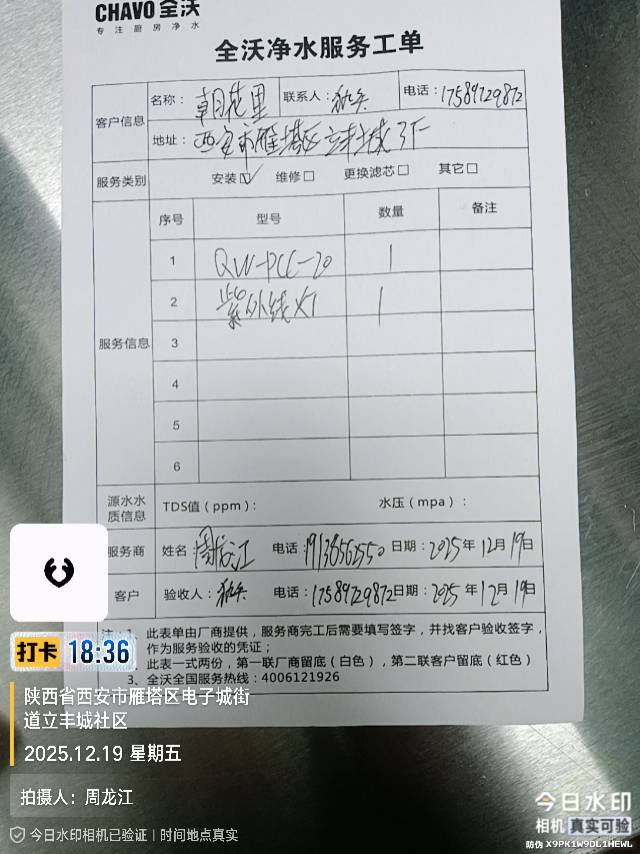 CHAVO 全沃
专注厨房净水
全沃净水服务工单
客户信息
名称： 朝花里 联系人： 电话：17589729872
地址： 西安市雁塔区立丰城3F
服务类别 安装☑ 维修□ 更换滤芯□ 其它□
服务信息
序号 型号 数量 备注
1 QW-PCC-20 1
2 紫外线灯 1
3
4
5
6
源水水质信息 TDS值（ppm）： 水压（mpa）：
服务商 姓名 周龙江 电话 19136562550 日期：2025年12月19日
客户 验收人： 电话：17589729872 日期：2025年12月19日
注：1、此表单由厂商提供，服务商完工后需要填写签字，并找客户验收签字，
作为服务验收的凭证；
此表一式两份，第一联厂商留底（白色），第二联客户留底（红色）
3、全沃全国服务热线：4006121926
打卡 18:36
陕西省西安市雁塔区电子城街
道立丰城社区
2025.12.19 星期五
拍摄人：周龙江
今日水印相机已验证 | 时间地点真实
今日水印
相机 真实可验
防伪 X9PK1W9DL1HEWL